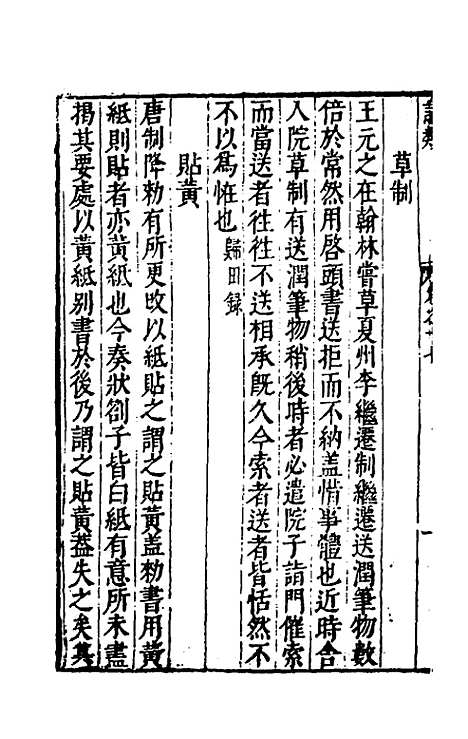 草制
王元之在翰林嘗草夏州李繼遷制繼遷送潤筆物數
倍於常然用啓頭書送拒而不納盖惜事體也近時舍
人院草制有送潤筆物稍後時者必遣院子詣門催索
而當送者徃徃不送相承旣久今索者送者皆恬然不
不以爲恠也歸田録
貼黃
唐制降勑有所更改以紙貼之謂之貼黃盖勑書用黃
紙則貼者亦黃紙也今奏狀劄子皆白紙有意所未盡
揭其要處以黃紙别書於後乃謂之貼黃葢失之矣其